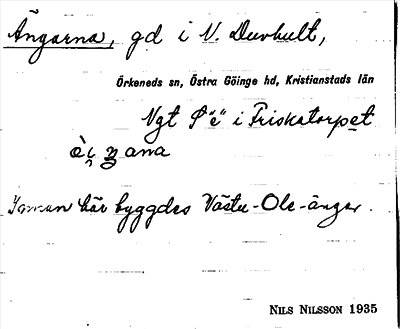 Ängarna, gd i V. Duvhult,
Örkeneds sn, Östra Göinge hd, Kristianstads län
Ngt S "e" i Friskatorpet
här byggdes Västu-Ole-ängar.
NILS NILSSON 1935